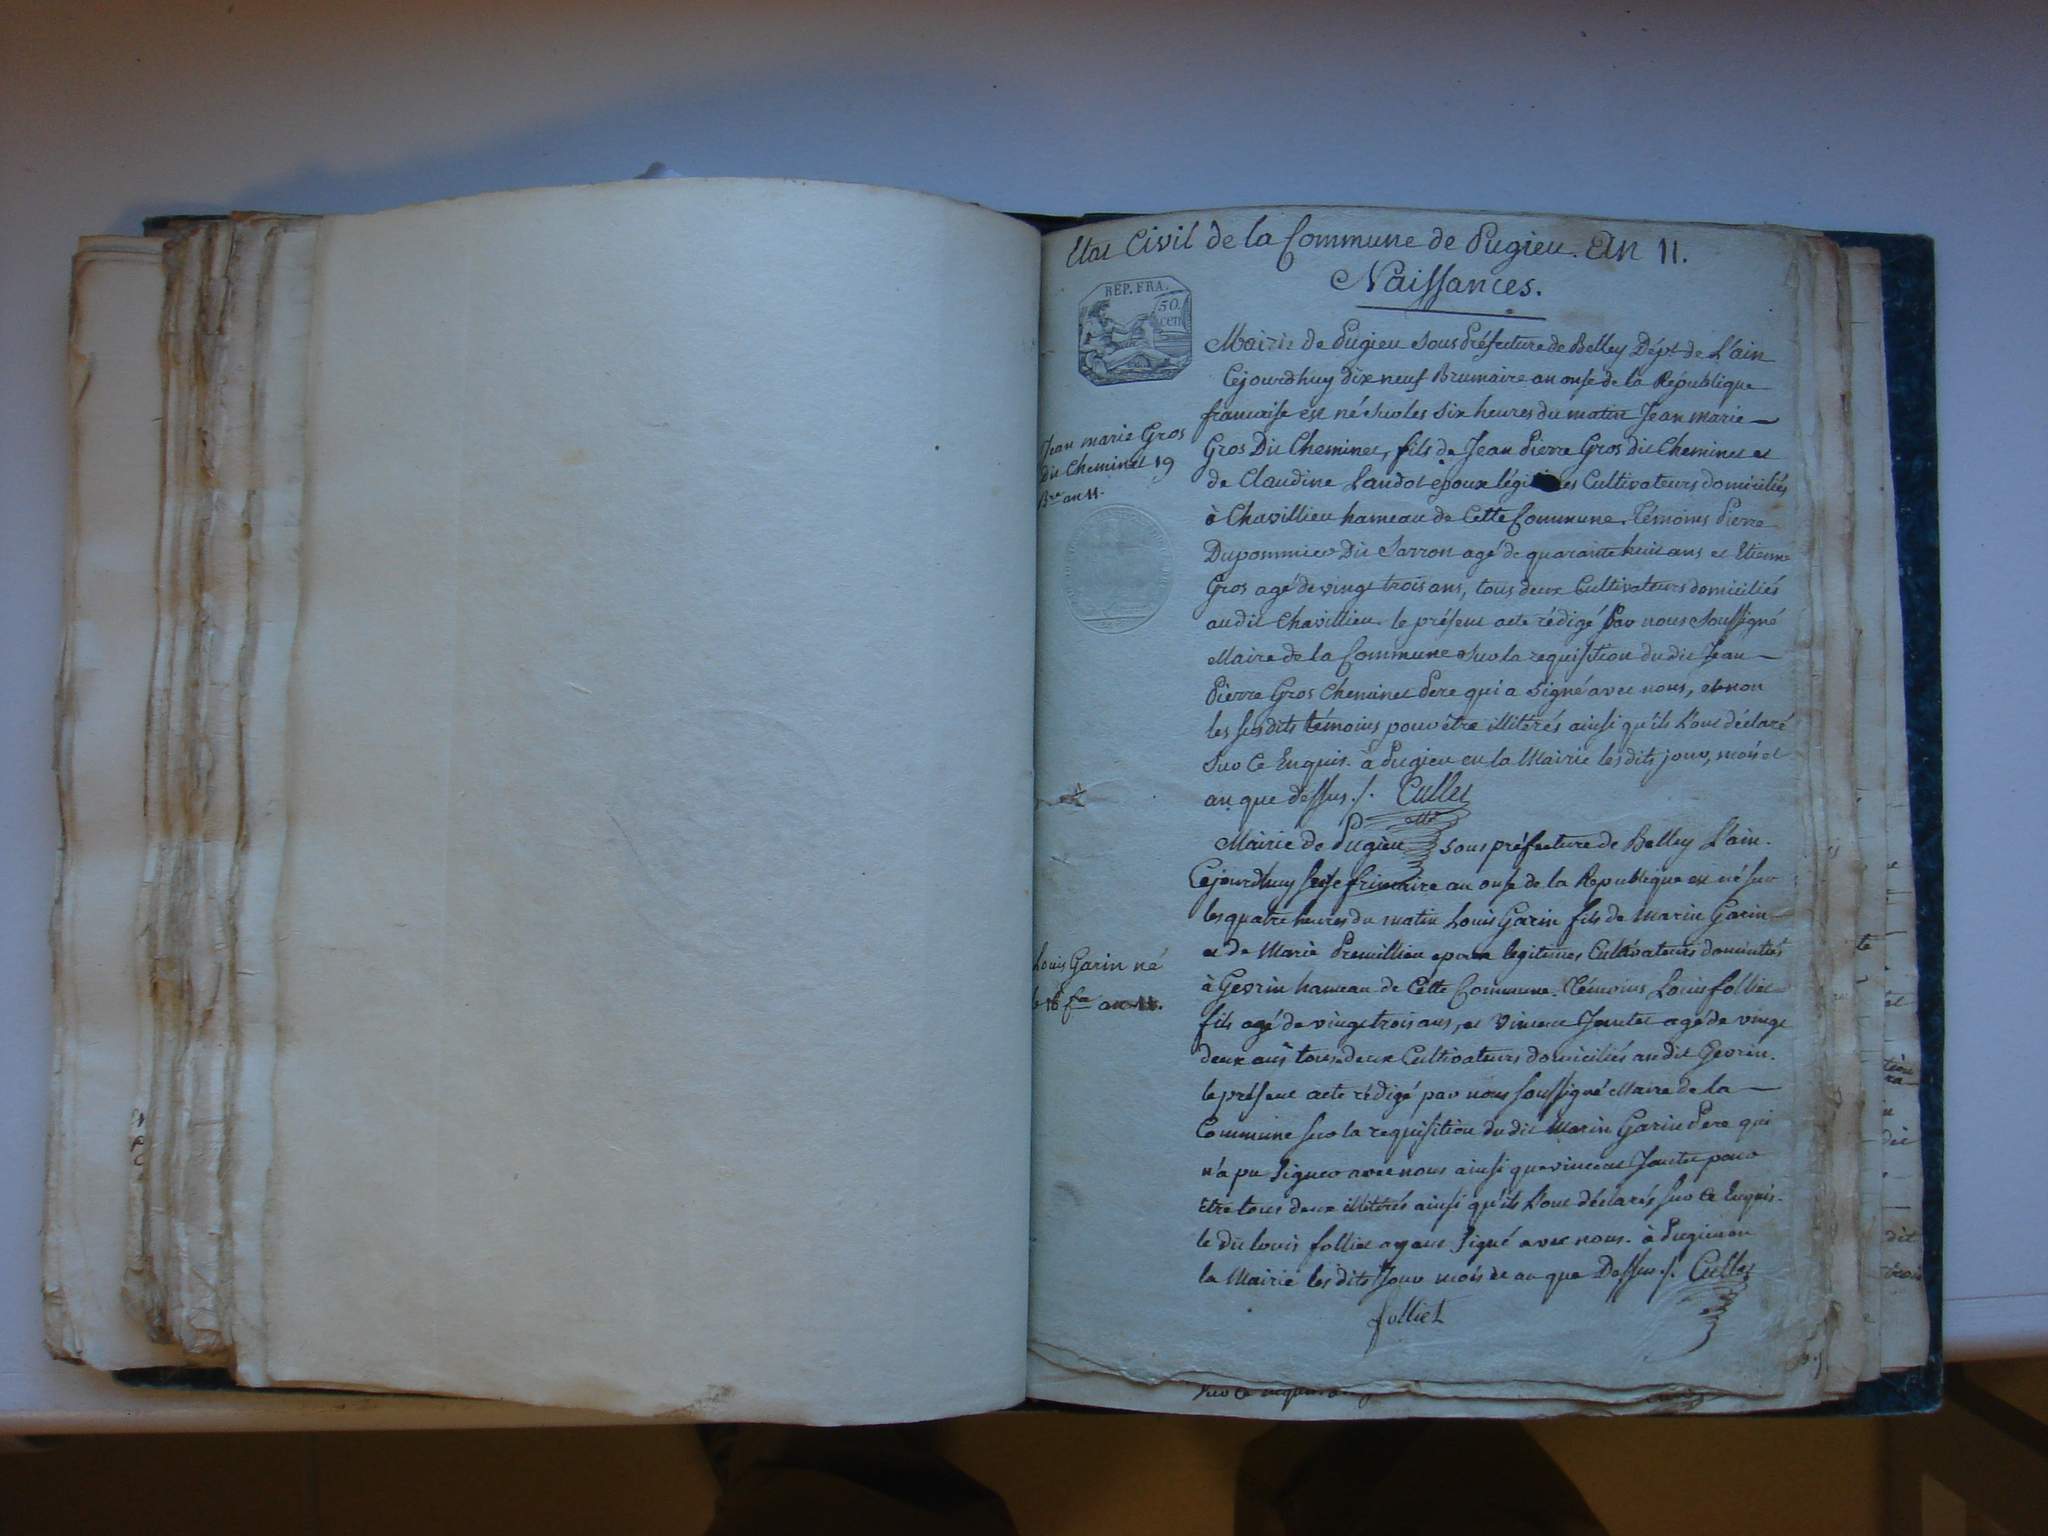 Etat Civil de la Commune de Pugieu. An 11.
Naissances.
REP. FRA.
50
cen
Mairie de Pugieu sous Préfecture de Belley Dépt de L'ain
Cejourdhuy dix neuf Brumaire an onse de la République
francaise est né sur les six heures du matin Jean marie
Gros Dit Cheminet, fils de Jean Pierre Gros dit Cheminet et
de Claudine Landot epoux légi es Cultivateurs domiciliés
à Chavillieu hameau de Cette Commune. Témoins Pierre
Dupommier Dit Sarron agé de quarante huit ans et Etienne
Gros agé de vingt trois ans, tous deux Cultivateurs domiciliés
audit Chavillieu. le présent acte rédigé Par nous Soussigné
Maire de la Commune sur la requisition du dit Jean
Pierre Gros Cheminet Pere qui a signé avec nous, et non
les susdits témoins pour être illitérés ainsi qu'ils L'ont déclaré
sur Ce Enquis. à Pugieu en la Mairie les dits jour, mois et
an que dessus ./. Cullet
Jean marie Gros
dit Cheminet 19
Bre an 11.
Mairie de Pugieu sous préfecture de Belley L'ain.
Cejourdhuy seise frimaire an onse de la Republique est né sur
les quatre heures du matin Louis Garin fils de Marin Garin
et de Marie Premillieu epoux legitimes Cultivateurs domiciliés
à Gevrin hameau de Cette Commune. Témoins Louis folliet
fils agé de vingt trois ans, et Vincent Jantet agé de vingt
deux ans tous deux Cultivateurs domiciliés au dit Gevrin.
le présent acte rédigé par nous soussigné Maire de la
Commune sur la requisition du dit Marin Garin Pere qui
n'a pu signer avec nous ainsi que vincent Jantet pour
Etre tous deux illitérés ainsi qu'ils L'ont déclarés sur Ce Enquis.
le dit louis folliet ayant signé avec nous. à Pugieu en
la Mairie les dits Jour mois et an que Dessus ./. Cullet
folliet
Louis Garin né
le 16 fre an 11.
sur Ce enquis